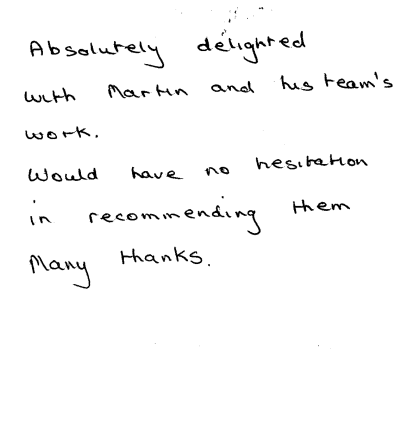 Absolutely delighted
with Martin and his team's
work.
Would have no hesitation
in recommending them
Many thanks.